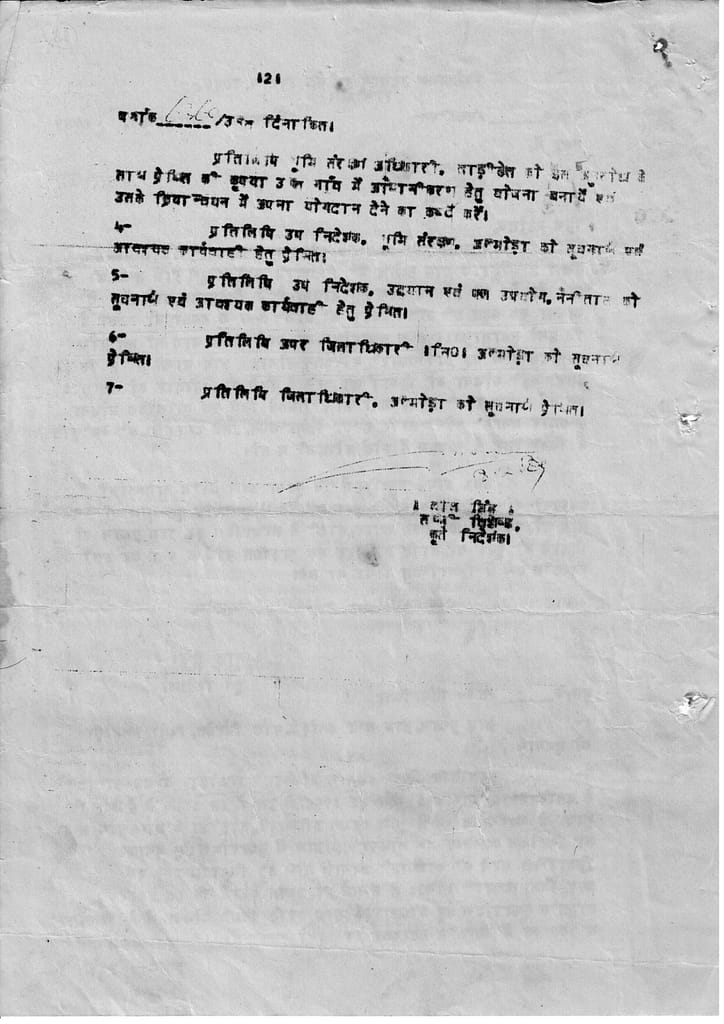 ।2।
क्रमांक /उक्त दिनांकित।
प्रतिलिपि भूमि संरक्षण अधिकारी, ताड़ीखेत को इस अनुरोध के
साथ प्रेषित की कृपया उक्त गाँव में औद्यानीकरण हेतु योजना बनायें एवं
उसके क्रियान्वयन में अपना योगदान देने का कष्ट करें।
4- प्रतिलिपि उप निदेशक, भूमि संरक्षण, अल्मोड़ा को सूचनार्थ एवं
आवश्यक कार्यवाही हेतु प्रेषित।
5- प्रतिलिपि उप निदेशक, उद्यान एवं फल उपयोग, नैनीताल को
सूचनार्थ एवं आवश्यक कार्यवाही हेतु प्रेषित।
6- प्रतिलिपि अपर जिलाधिकारी ।नि०। अल्मोड़ा को सूचनार्थ
प्रेषित।
7- प्रतिलिपि जिलाधिकारी, अल्मोड़ा को सूचनार्थ प्रेषित।
सिंह
कृते निदेशक।